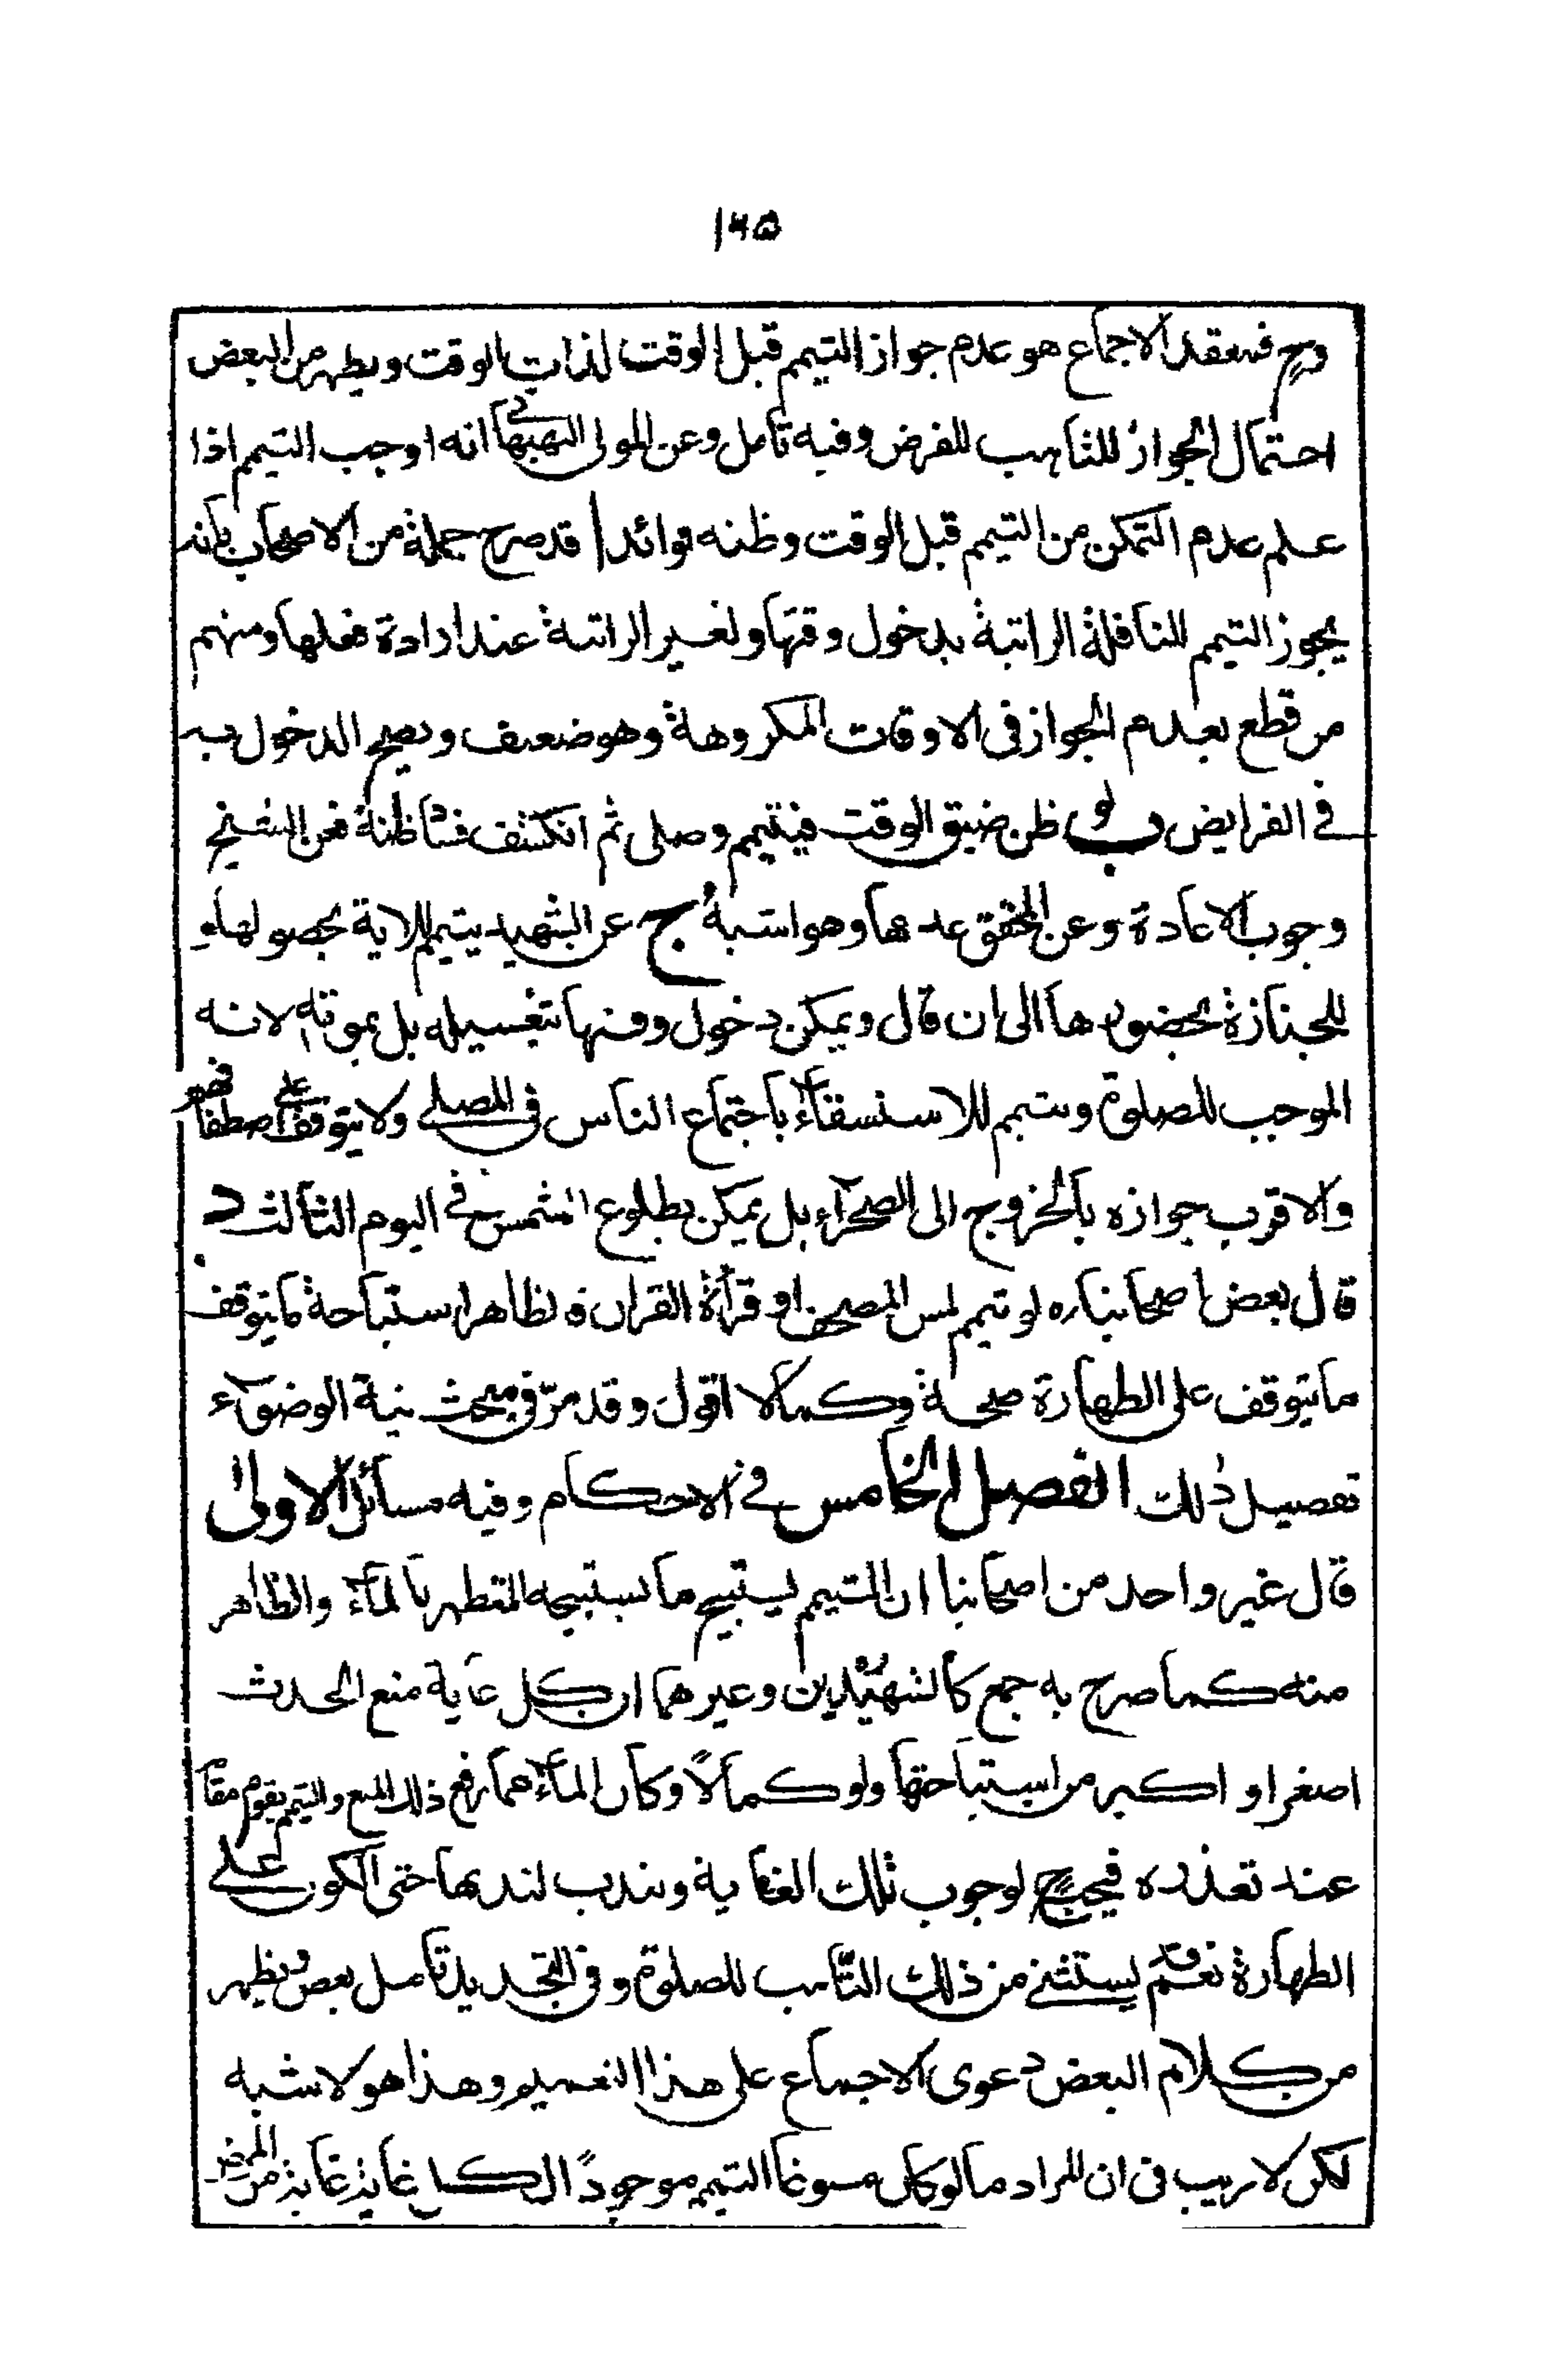 ١٤٥
وح فمعقد الاجماع هو عدم جواز التيمم قبل الوقت لذات الوقت ويظهر من البعض
احتمال الجواز للتاهب للفرض وفيه تامل وعن المولى البهبهانى انه اوجب التيمم اذا
علم عدم التمكن من التيمم قبل الوقت وظنه فوائد ا قد صرح جملة من الاصحاب بانه
يجوز التيمم للنافلة الراتبة بدخول وقتها ولغير الراتبة عند ارادة فعلها ومنهم
من قطع بعدم الجواز فى الاوقات المكروهة وهو ضعيف ويصح الدخول به
فى الفرايض ب لو ظن ضيق الوقت فيتيمم وصلى ثم انكشف فساظنة فعن الشيخ
وجوب الاعادة وعن المحقق عدمها وهو اشبه ج عن الشهيد يتيمم للاية بحصولها و
للجنازة بحضورها الى ان قال ويمكن دخول وقتها بتغسيله بل بموته لانه
الموجب للصلوة ويتيمم للاستسقاء باجتماع الناس فى المصلى ولا يتوقف على اصطفافهم
والاقرب جوازه بالخروج الى الصحراء بل يمكن بطلوع الشمس فى اليوم الثالث د
قال بعض اصحابنا ره لو تيمم لمس المصحف او قراءة القران فلظاهر استباحة ما يتوقف
ما يتوقف على الطهارة صحة وكمالا اقول وقد مرّ فى مبحث نية الوضوء
تفصيل ذلك الفصل الخامس فى الاحكام وفيه مسائل الاولى
قال غير واحد من اصحابنا ان المتيمم يستبيح ما يستبيحه المتطهر بالماء والظاهر
منه كما صرح به جمع كالشهيدين وغيرهما ان كل غاية منع الحدث
اصغر او اكبر من استباحتها ولو كمالاً وكان الماء مما رفع ذلك المنع والتيمم يقوم مقامه
عند تعذره فيجب ح لوجوب تلك الغاية ويندب لندبها حتى الكون على
الطهارة نعم يستثنى من ذلك التاهب للصلوة وفى التجديد تامل بعض ويظهر
من كلام البعض دعوى الاجماع على هذا التعميم وهذا هو الاشبه
لكن لا ريب فى ان المراد ما لو كان مسوغا التيمم موجوداً لكل غاية غاية من